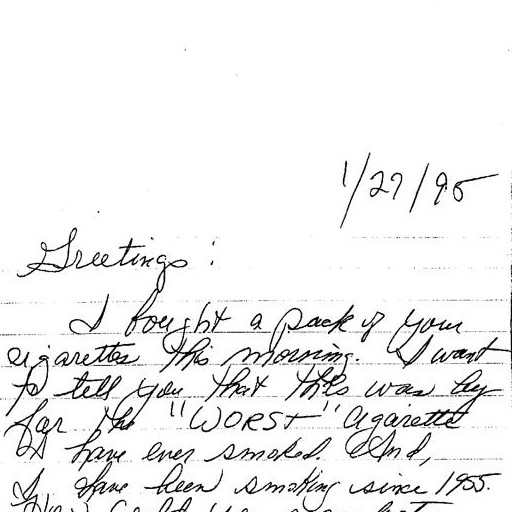 1/27/95
Greetings:
I bought a pack of your
cigarettes this morning. I want
to tell you that this was by
far the "WORST" cigarette
I have ever smoked. And,
I have been smoking since 1955.